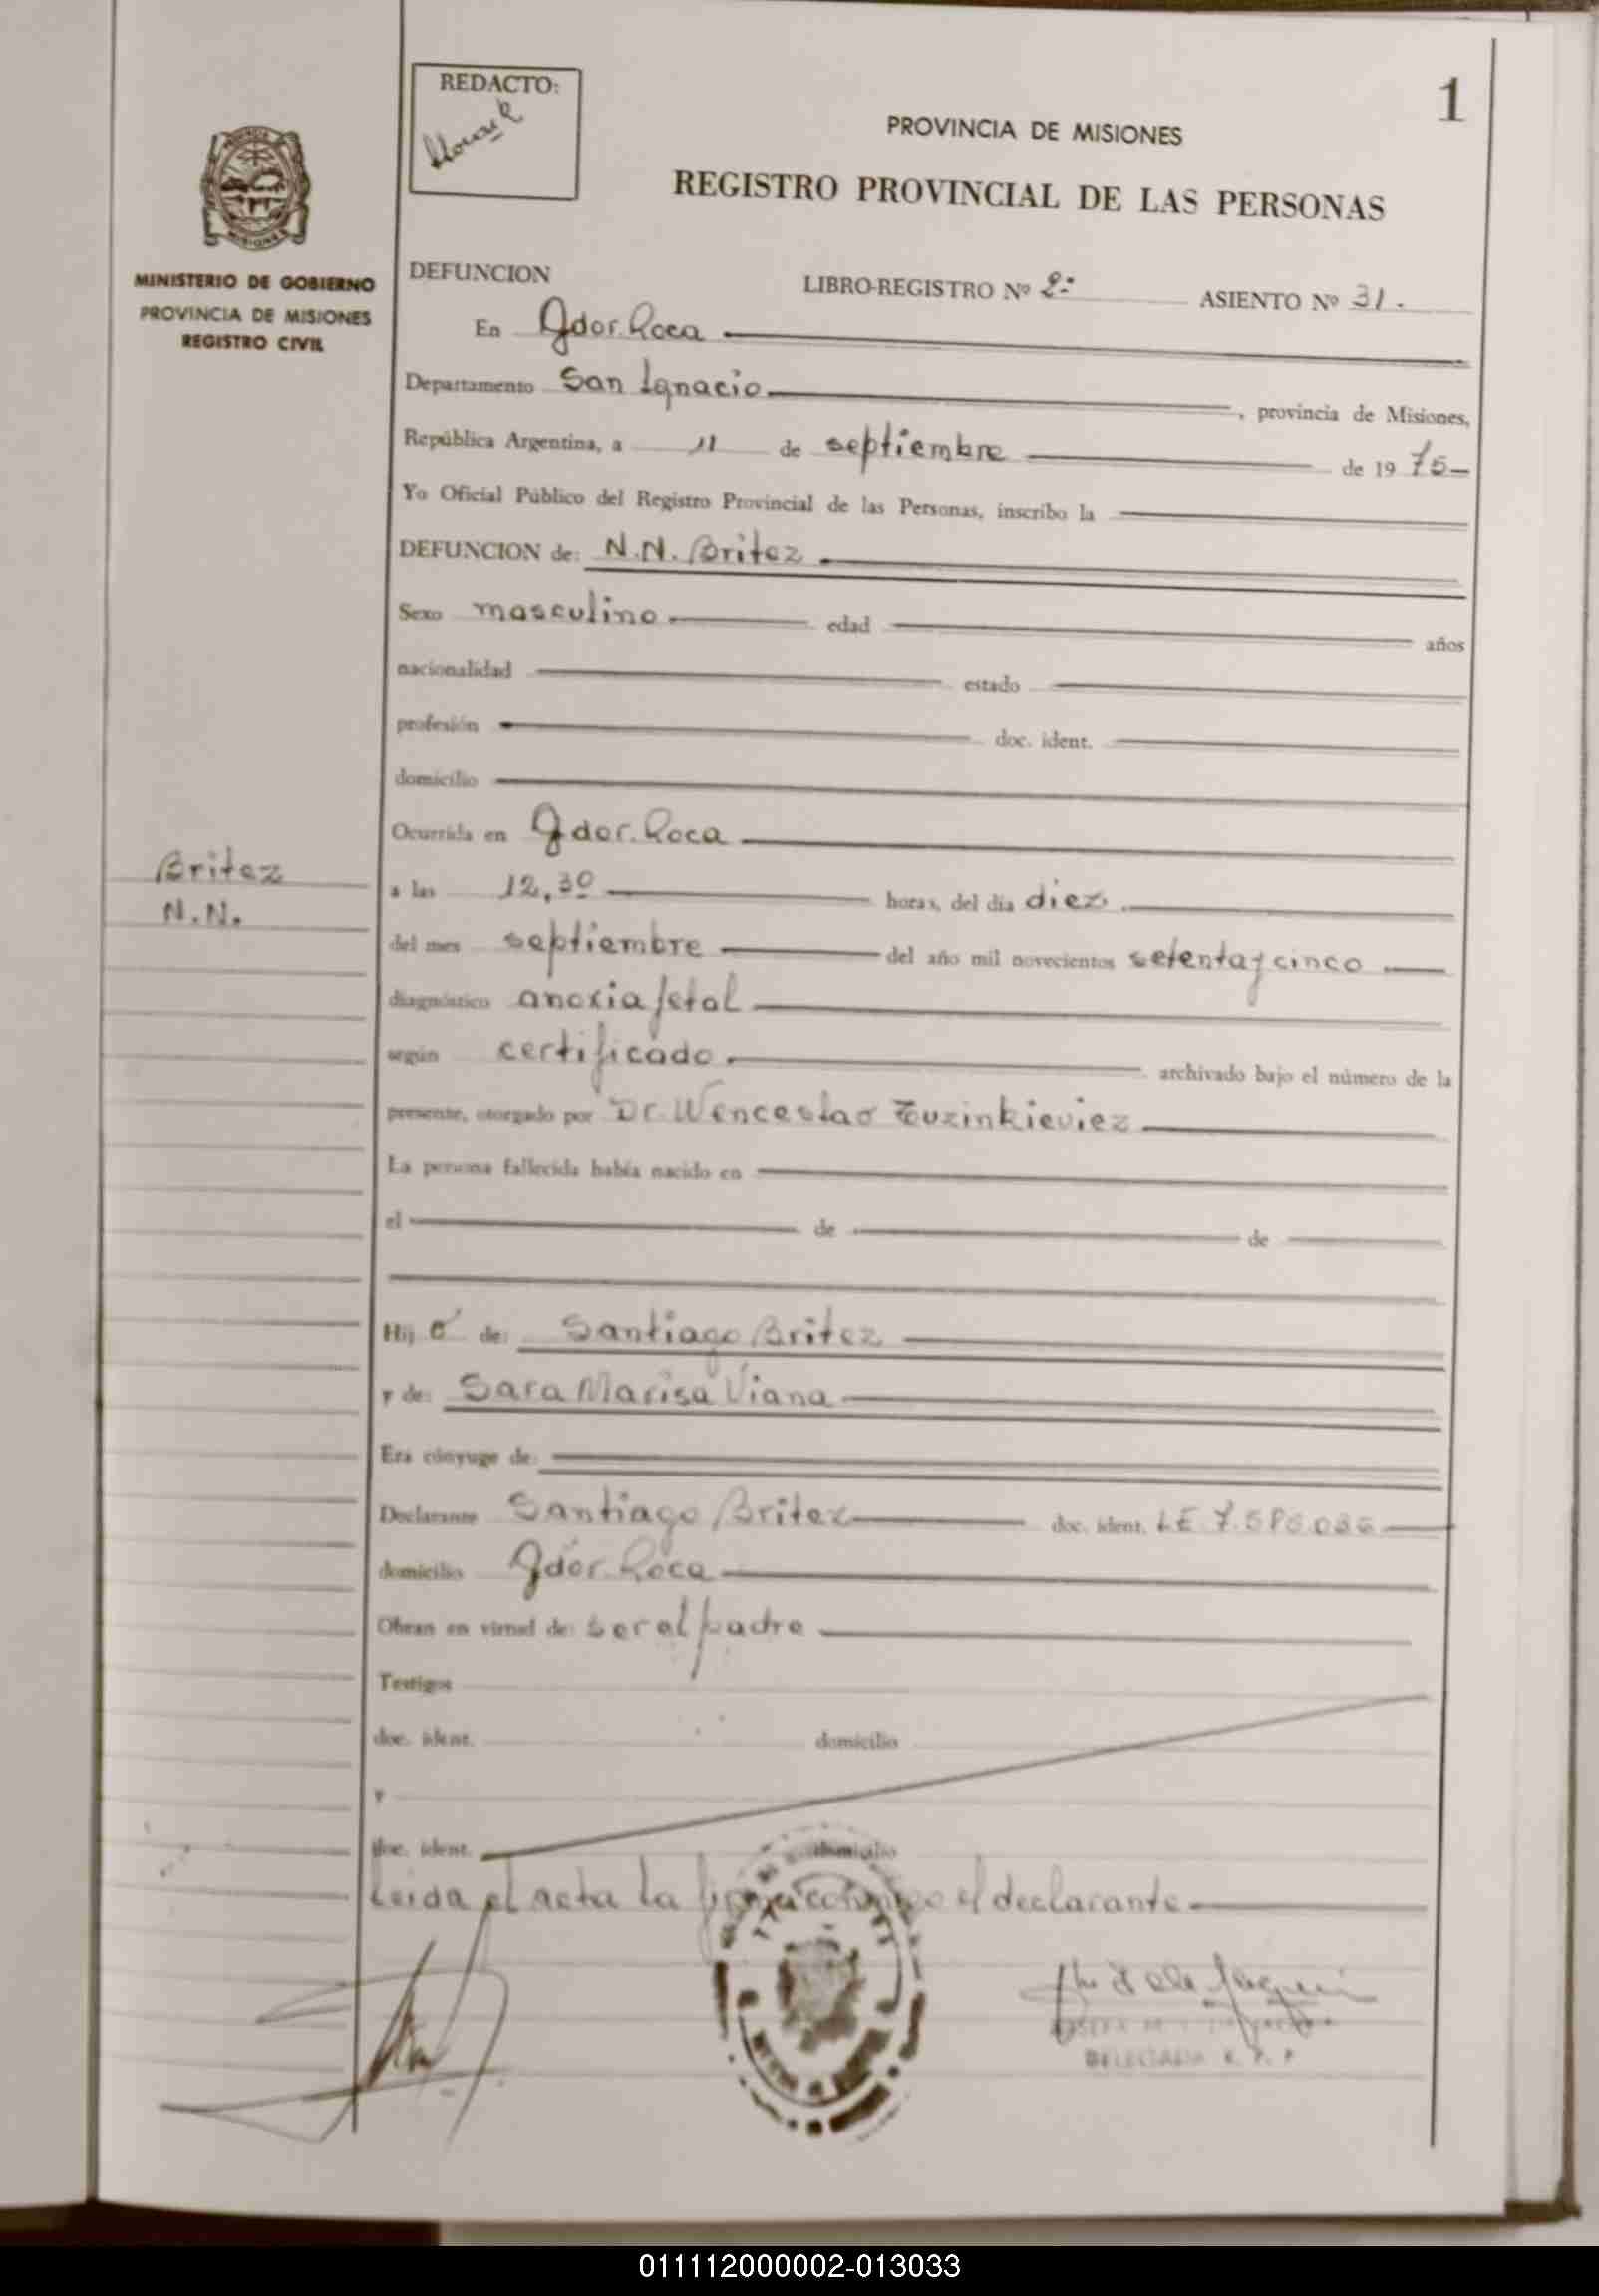 REDACTO:
1
PROVINCIA DE MISIONES
REGISTRO PROVINCIAL DE LAS PERSONAS
MINISTERIO DE GOBIERNO
PROVINCIA DE MISIONES
REGISTRO CIVIL
DEFUNCION LIBRO-REGISTRO Nº 2º ASIENTO Nº 31.
En Gdor. Roca
Departamento San Ignacio, provincia de Misiones,
República Argentina, a 11 de septiembre de 1975
Yo Oficial Público del Registro Provincial de las Personas, inscribo la
DEFUNCION de: N.N. Britez
Sexo masculino edad años
nacionalidad estado
profesión doc. ident.
domicilio
Ocurrida en Gdor. Roca
Britez
N.N.
a las 12,30 horas, del día diez
del mes septiembre del año mil novecientos setenta y cinco
diagnóstico anoxia fetal
según certificado archivado bajo el número de la
presente, otorgado por Dr. Wenceslao Tuzinkieviez
La persona fallecida había nacido en
el de de
Hijo de: Santiago Britez
y de: Sara Marisa Viana
Era cónyuge de:
Declarante Santiago Britez doc. ident. LE 7.
domicilio Gdor. Roca
Obran en virtud de: ser el padre
Testigos
doc. ident. domicilio
y
doc. ident. domicilio
Leida el acta la firma conmigo el declarante
DELEGADA R. P. P
011112000002-013033